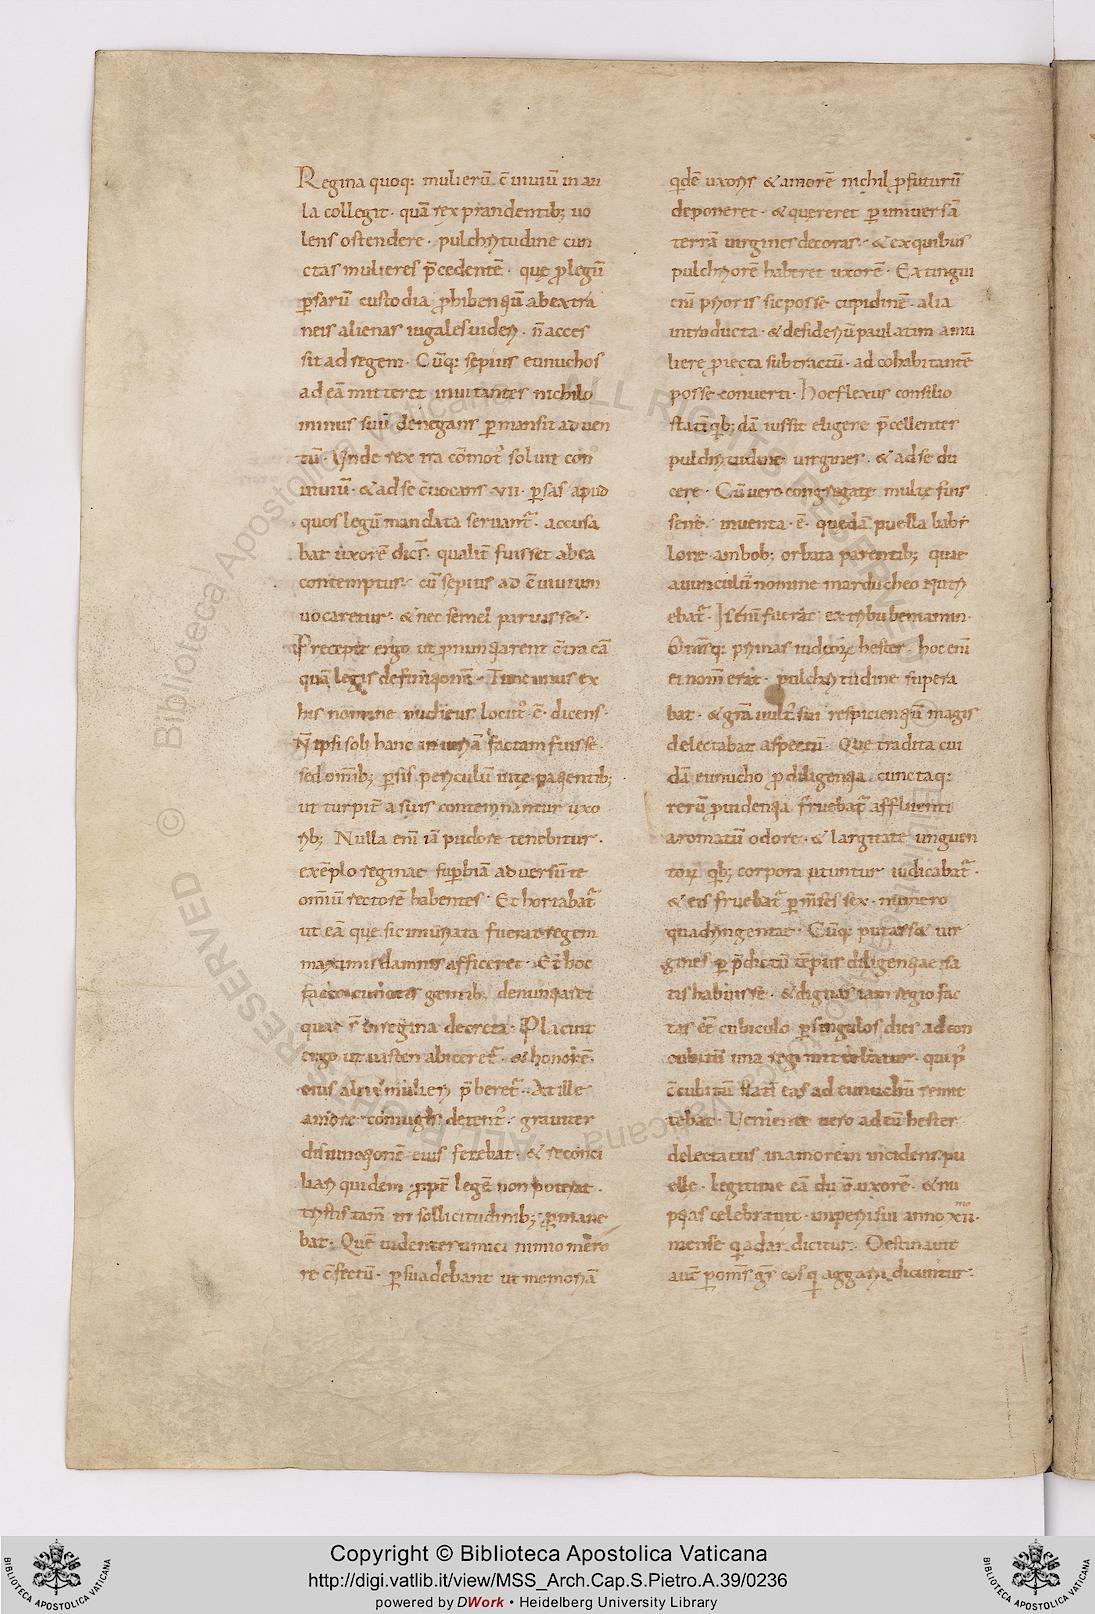 Regina quoq; mulierū c̄uiuiū in au
la collegit· quā rex prandentib; uo
lens ostendere· pulchritudine cun
ctas mulieres p̄cedentē· quę ꝓ legū
ꝑsarū custodia ꝓhibentiū ab extra
neis alienas iugales uideri· n̄ acces
sit ad regem· Cūq; sepius eunuchos
ad eā mitteret inuitantes nichilo
minus suū denegans ꝑmansit aduen
tū· Unde rex ira cōmot᾿ soluit con
uiuiū· & ad se c̄uocans ·vii· ꝑsas apud
quos legū mandata seruant᷑· accusa
bat uxorē dicēs· qualit̄ fuisset ab ea
contemptus· cū sepius ad c̄uiuium
uocaretur· & nec semel paruisset·
Precepit ergo ut ꝓnuntiarent c̄tra eā
quā legis definitionē· Tunc unus ex
his nomine mucheus locut᾿ ē· dicens·
N̄ ipsi soli hanc iniuriā factam fuisse·
sed omīb; ꝑsis periculū uitę patientib;
ut turpit̄ a suis contemnantur uxo
rib; Nulla eni iā pudore tenebitur·
exēplo reginae suꝑbiā aduersū te
omiū rectorē habentes· Et hortabat᷑
ut eā que sic iniuriata fuerat regem
maximis damnis afficeret· Et hoc
facto cunctis gentib; denuntiaret
quae sī de regina decreta· Placuit
ergo ut uasten abiceret᷑· & honorē
eius alteri mulieri p̄beret᷑· At ille
amore coniugis detent᾿· grauiter
disiunctionē eius ferebat· & reconci
liari quidem ꝓpt̄ legē non poterat·
tristis tam̄ in sollicitudinib; ꝑmane
bat· Quē uidentes amici nimio mero
re c̄fectū· ꝑsuadebant ut memoriā
qidē uxoris & amorē nichil ꝓfuturū
deponeret· & quereret ꝑ uniuersā
terrā uirgines decoras· & ex quibus
pulchriorē haberet uxorē· Extingui
eni prioris sic posse cupidinē· alia
introducta· & desideriū paulatim a mu
liere ꝓiecta subtractū· ad cohabitantē
posse conuerti· Hoc flexus consilio
statī qib; dā iussit eligere p̄cellentes
pulchritudine uirgines· & ad se du
cere· Cū uero congregatę multę fuis
sent· inuenta ·ē· quędā puella babi
lone ambob; orbata parentib; quae
auunculū nomine mardocheo nutri
ebat᷑· Is eni fuerat ex tribu beniamin·
Omīsq; primas iudeoꝝ hester· hoc eni
ei nom̄ erat· pulchritudine supera
bat· & grā uult᾿ sui respicientiū magis
delectabat aspectū· Que tradita cui
dā eunucho ꝓ diligentia cunctaq;
rerū ꝓuidentia fruebat᷑ affluenti
aromatū odore· & largitate unguen
toꝝ qib; corpora utuntur iudicabat᷑·
& eis fruebat᷑ ꝑ m̄ses sex· numero
quadringentae· Cūq; putasset uir
gines ꝑ p̄dictū tēpus diligentiae sa
tis habuisse· & dignas iam regio fac
tas eē cubiculo ꝑ singulos dies ad con
cubitū una regi mittebatur· qui p᾿
c̄cubitū statī eas ad eunuchū remit
tebat· Ueniente uero ad eū hester
delectatus in amorem incidens pu
elle· legitime eā duxit uxorē· & nu
ptias celebrauit· imperii sui anno xiimo·
mense qi adar dicitur· Destinauit
aut̄ ꝑ om̄s ḡs eos qi aggari dicuntur·
Copyright © Biblioteca Apostolica Vaticana
http://digi.vatlib.it/view/MSS_Arch.Cap.S.Pietro.A.39/0236
powered by DWork • Heidelberg University Library